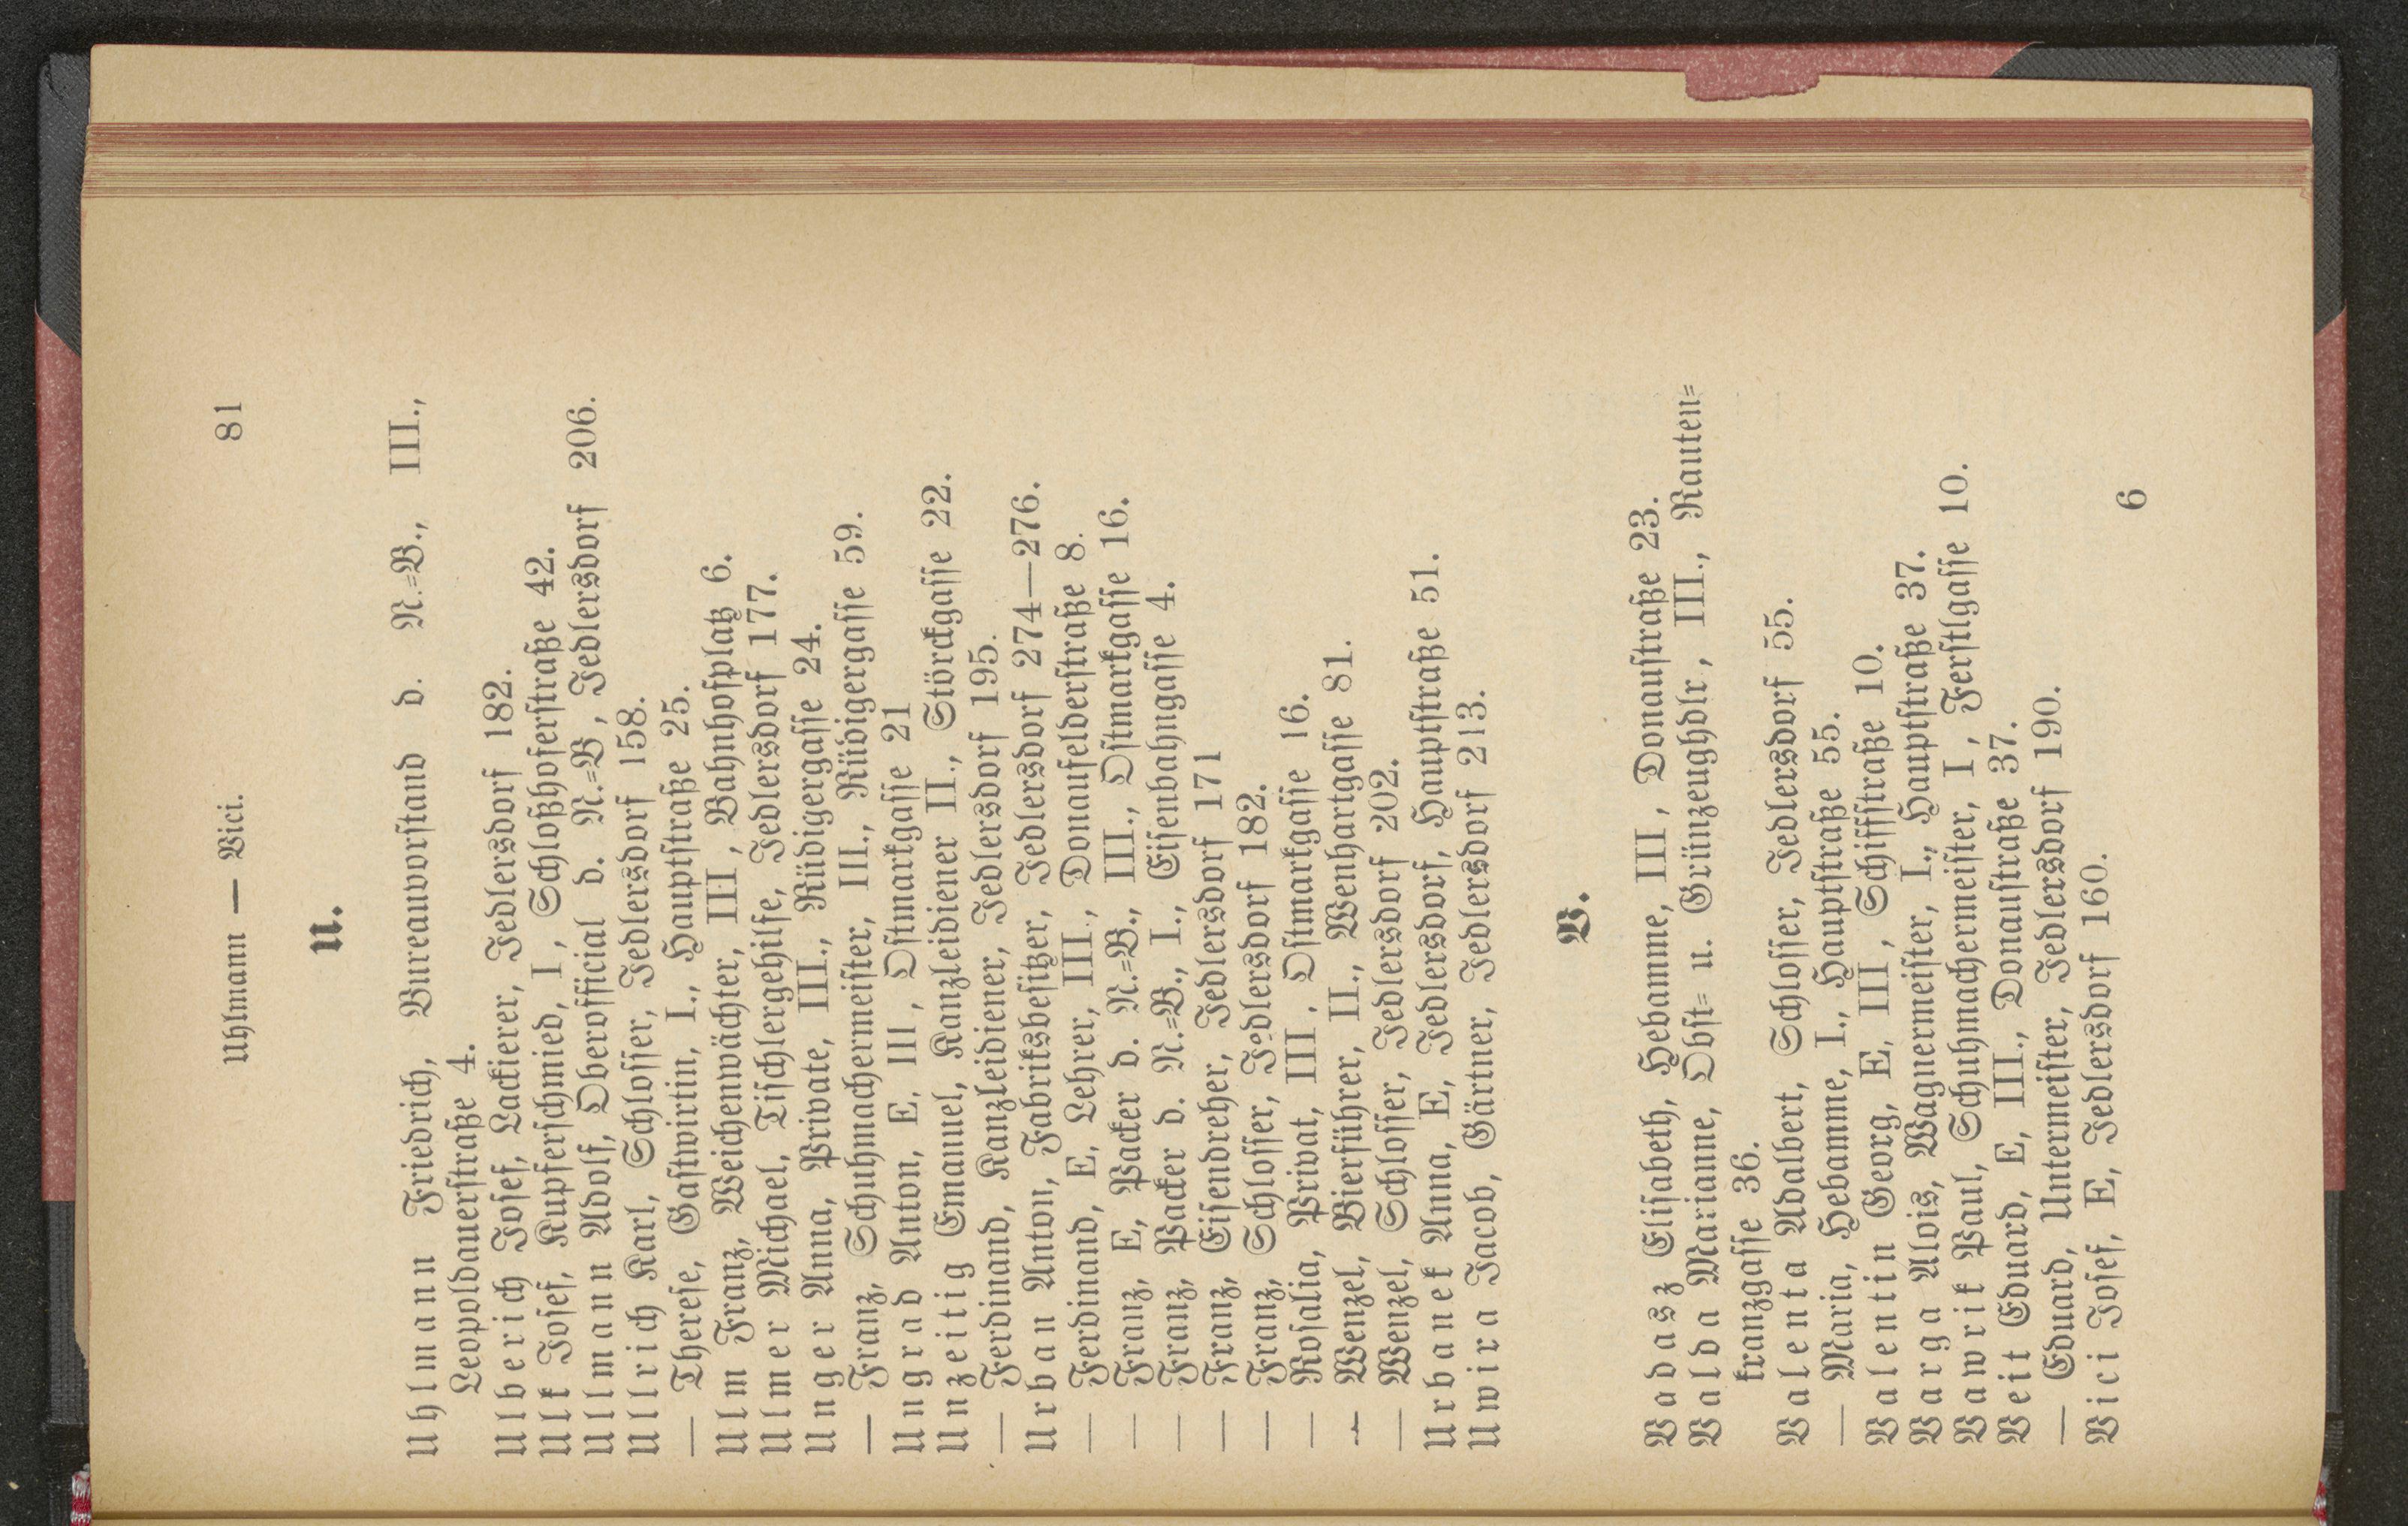 Uhlmann — Vici. 81
U.
Uhlmann Friedrich, Bureauvorstand d. N.=B., III.,
Leopoldauerstraße 4.
Ulberich Josef, Lackierer, Jedlersdorf 182.
Ulk Josef, Kupferschmied, I, Schloßhoferstraße 42.
Ullmann Adolf, Oberofficial d. N.=B, Jedlersdorf 206.
Ullrich Karl, Schlosser, Jedlersdorf 158.
— Therese, Gastwirtin, I., Hauptstraße 25.
Ulm Franz, Weichenwächter, III, Bahnhofplatz 6.
Ulmer Michael, Tischlergehilfe, Jedlersdorf 177.
Unger Anna, Private, III., Rüdigergasse 24.
— Franz, Schuhmachermeister, III., Rüdigergasse 59.
Ungrad Anton, E, III, Ostmarkgasse 21
Unzeitig Emanuel, Kanzleidiener II., Störckgasse 22.
— Ferdinand, Kanzleidiener, Jedlersdorf 195.
Urban Anton, Fabriksbesitzer, Jedlersdorf 274—276.
— Ferdinand, E, Lehrer, III., Donaufelderstraße 8.
— Franz, E, Packer d. N.=B., III., Ostmarkgasse 16.
— Franz, Packer d. N.=B., I., Eisenbahngasse 4.
— Franz, Eisendreher, Jedlersdorf 171
— Franz, Schlosser, Jedlersdorf 182.
— Rosalia, Privat, III, Ostmarkgasse 16.
— Wenzel, Bierführer, II., Wenhartgasse 81.
— Wenzel, Schlosser, Jedlersdorf 202.
Urbanek Anna, E, Jedlersdorf, Hauptstraße 51.
Uwira Jacob, Gärtner, Jedlersdorf 213.
V.
Vadasz Elisabeth, Hebamme, III, Donaustraße 23.
Valda Marianne, Obst= u. Grünzeughdlr, III., Rauten=
kranzgasse 36.
Valenta Adalbert, Schlosser, Jedlersdorf 55.
— Maria, Hebamme, I., Hauptstraße 55.
Valentin Georg, E, III, Schiffstraße 10.
Varga Alois, Wagnermeister, I., Hauptstraße 37.
Vawrik Paul, Schuhmachermeister, I, Ferstlgasse 10.
Veit Eduard, E, III., Donaustraße 37.
— Eduard, Untermeister, Jedlersdorf 190.
Vici Josef, E, Jedlersdorf 160.
6